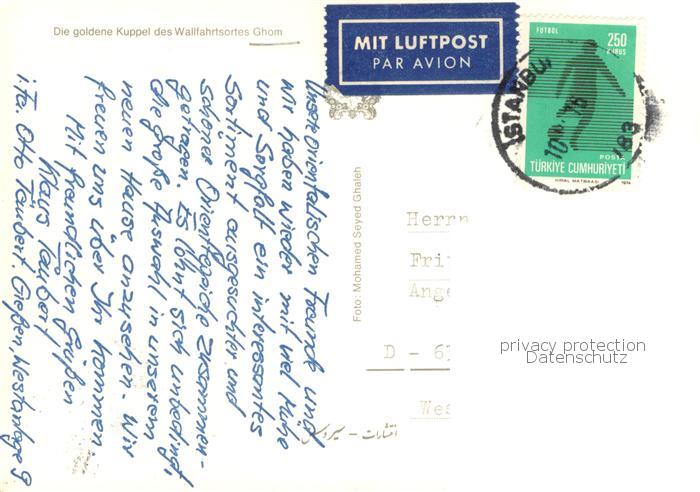 Die goldene Kuppel des Wallfahrtsortes Ghom
MIT LUFTPOST
PAR AVION
FUTBOL
250
KURUŞ
POSTA
TÜRKİYE CUMHURİYETİ
1974
ISTANBUL
Unsere orientalischen Freunde und
wir haben wieder mit viel Mühe
und Sorgfalt ein interessantes
Sortiment ausgesuchter und
schöner Orientteppiche zusammen-
getragen. Es lohnt sich unbedingt,
die große Auswahl in unserem
neuen Hause anzusehen. Wir
freuen uns über Ihr Kommen.
Mit freundlichen Grüßen
Klaus Täubert
i. Fa. Otto Täubert. Gießen, Westanlage 9
Foto: Mohamed Seyed Ghaleh
Herrn
Fri
Ange
D - 6
Wes
انتشارات - سیروس
privacy protection
Datenschutz